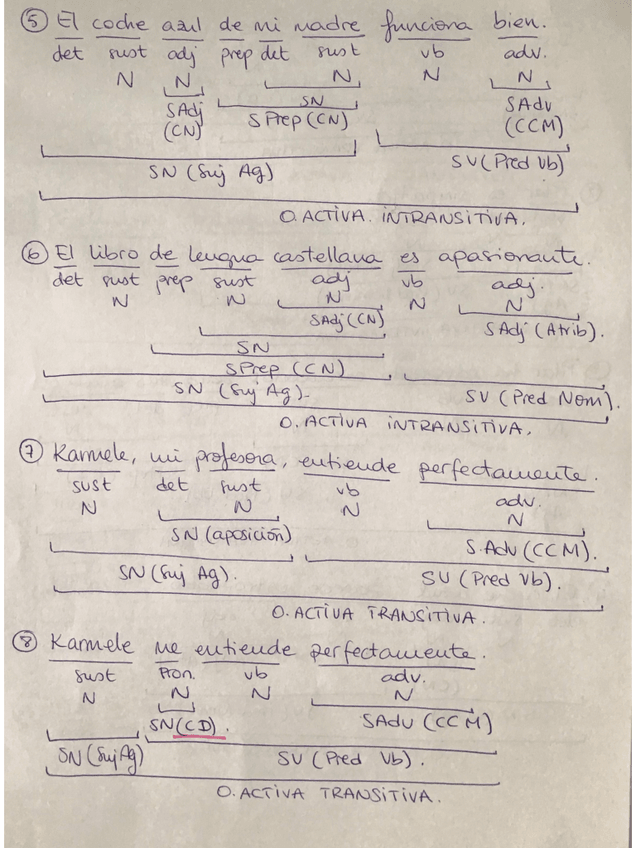 ⑤ El coche azul de mi madre funciona bien.
det sust adj prep det sust vb adv.
N N N N N
SAdj SN SAdv
(CN) SPrep (CN) (CCM)
SN (Suj Ag) SV (Pred Vb)
O. ACTIVA INTRANSITIVA.
⑥ El libro de lengua castellana es apasionante.
det sust prep sust adj vb adj.
N N N N N
SAdj (CN) SAdj (Atrib).
SN
SPrep (CN)
SN (Suj Ag). SV (Pred Nom).
O. ACTIVA INTRANSITIVA.
⑦ Karmele, mi profesora, entiende perfectamente.
sust det sust vb adv.
N N N N
SN (aposición) S.Adv (CCM).
SN (Suj Ag). SV (Pred Vb).
O. ACTIVA TRANSITIVA.
⑧ Karmele me entiende perfectamente.
sust Pron. vb adv.
N N N N
SN (CD). SAdv (CCM)
SN (Suj Ag) SV (Pred Vb).
O. ACTIVA TRANSITIVA.